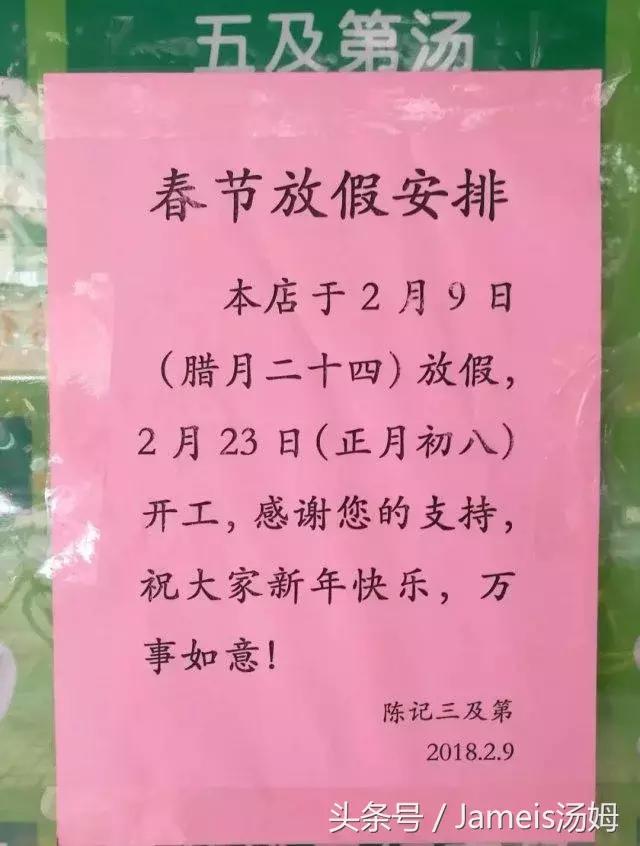 五及第汤
春节放假安排
本店于2月9日
（腊月二十四）放假，
2月23日（正月初八）
开工，感谢您的支持，
祝大家新年快乐，万
事如意！
陈记三及第
2018.2.9
头条号 / Jameis汤姆